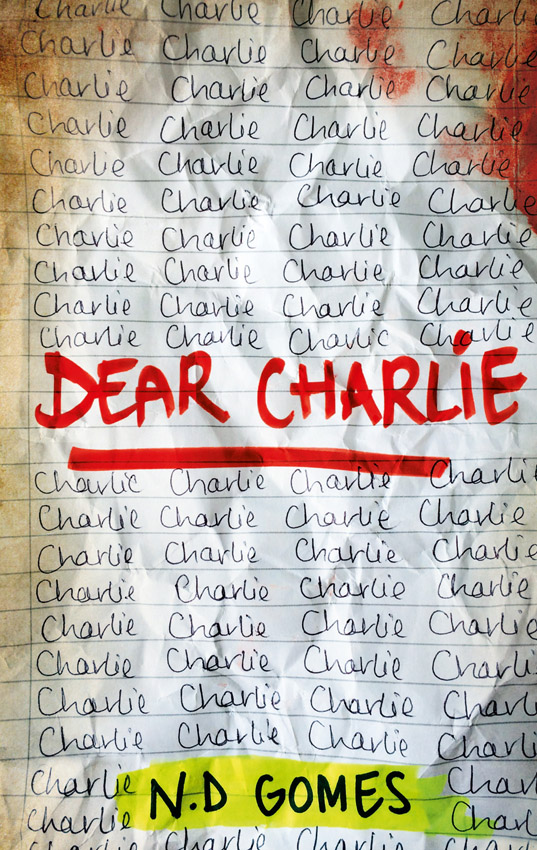 Charlie Charlie Charlie Charli
Charlie Charlie Charlie Charlie
Charlie Charlie Charlie Charlie
Charlie Charlie Charlie Charlie
Charlie Charlie Charlie Charlie
Charlie Charlie Charlie Charlie
Charlie Charlie Charlie Charlie
Charlie Charlie Charlie Charlie
Charlie Charlie Charlie Charlie
Charlie Charlie Charlie Charlie
DEAR CHARLIE
Charlie Charlie Charlie Charli
Charlie Charlie Charlie Charlie
Charlie Charlie Charlie Charlie
Charlie Charlie Charlie Charlie
Charlie Charlie Charlie Charlie
Charlie Charlie Charlie Charli
Charlie Charlie Charlie Charl
Charlie Charlie Charlie Charli
Charlie Char
N.D GOMES
Charlie Charl
Charlie Charlie Charlie